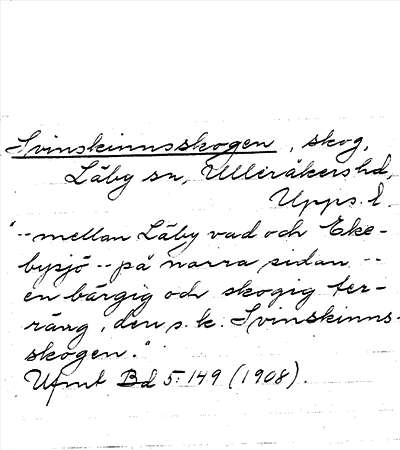 Svinskinnsskogen, skog,
Läby sn, Ulleråkers hd,
Upps. l.
"-- mellan Läby vad och Eke-
bysjö -- på norra sidan --
en bärgig och skogig ter-
räng, den s. k. Svinskinns-
skogen."
Ufmt Bd 5: 149 (1908).